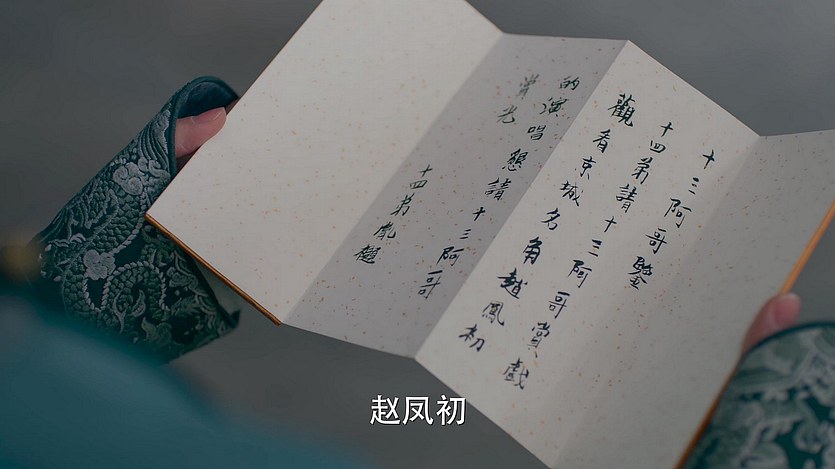 十三阿哥鑒
十四弟請十三阿哥賞戲
觀看京城名角趙鳳初
的演唱懇請十三阿哥
賞光
十四弟胤
赵凤初